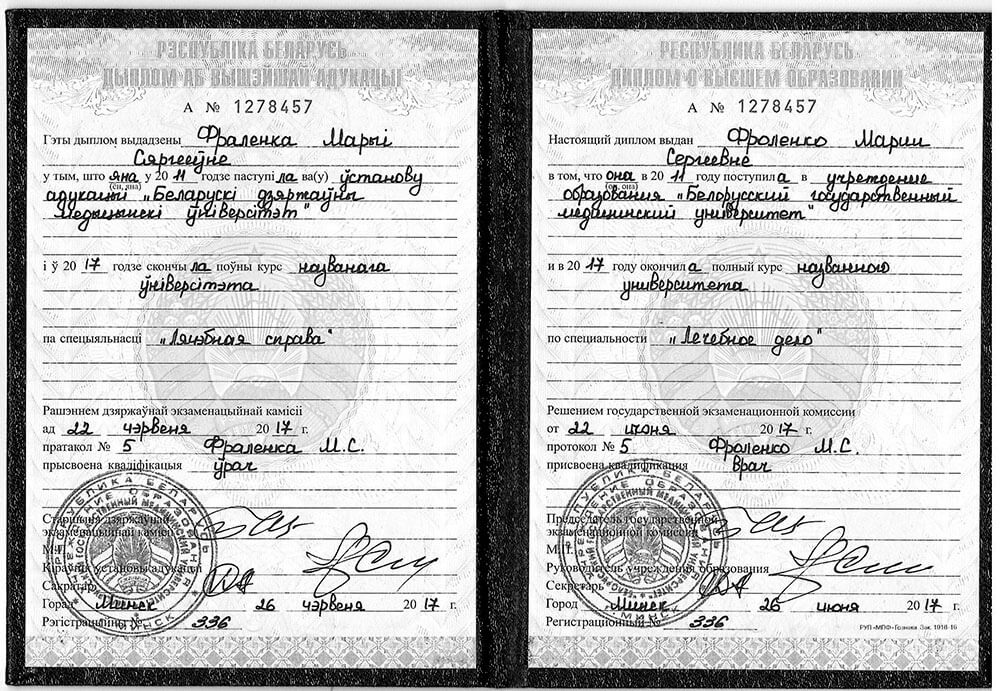 РЭСПУБЛІКА БЕЛАРУСЬ
ДЫПЛОМ АБ ВЫШЭЙШАЙ АДУКАЦЫІ
А № 1278457
Гэты дыплом выдадзены Фраленка Марыі
Сяргееўне
у тым, што яна у 2011 годзе паступіла ва(у) ўстанову
(ён, яна)
адукацыі „Беларускі дзяржаўны
медыцынскі ўніверсітэт"
і ў 2017 годзе скончыла поўны курс названага
ўніверсітэта
па спецыяльнасці „Лячэбная справа"
Рашэннем дзяржаўнай экзаменацыйнай камісіі
ад 22 чэрвеня 2017 г.
пратакол № 5 Фраленка М.С.
прысвоена кваліфікацыя ўрач
Старшыня дзяржаўнай
экзаменацыйнай камісіі
М.П.
Кіраўнік установы адукацыі
Сакратар
Горад Минск 26 чэрвеня 2017 г.
Рэгістрацыйны № 336
РЕСПУБЛИКА БЕЛАРУСЬ
ДИПЛОМ О ВЫСШЕМ ОБРАЗОВАНИИ
А № 1278457
Настоящий диплом выдан Фроленко Марии
Сергеевне
в том, что она в 2011 году поступила в учреждение
(он, она)
образования „Белорусский государственный
медицинский университет"
и в 2017 году окончила полный курс названного
университета
по специальности „Лечебное дело"
Решением государственной экзаменационной комиссии
от 22 июня 2017 г.
протокол № 5 Фроленко М.С.
присвоена квалификация врач
Председатель государственной
экзаменационной комиссии
М.П.
Руководитель учреждения образования
Секретарь
Город Минск 26 июня 2017 г.
Регистрационный № 336
РУП «МПФ» Гознака Зак. 1916-16